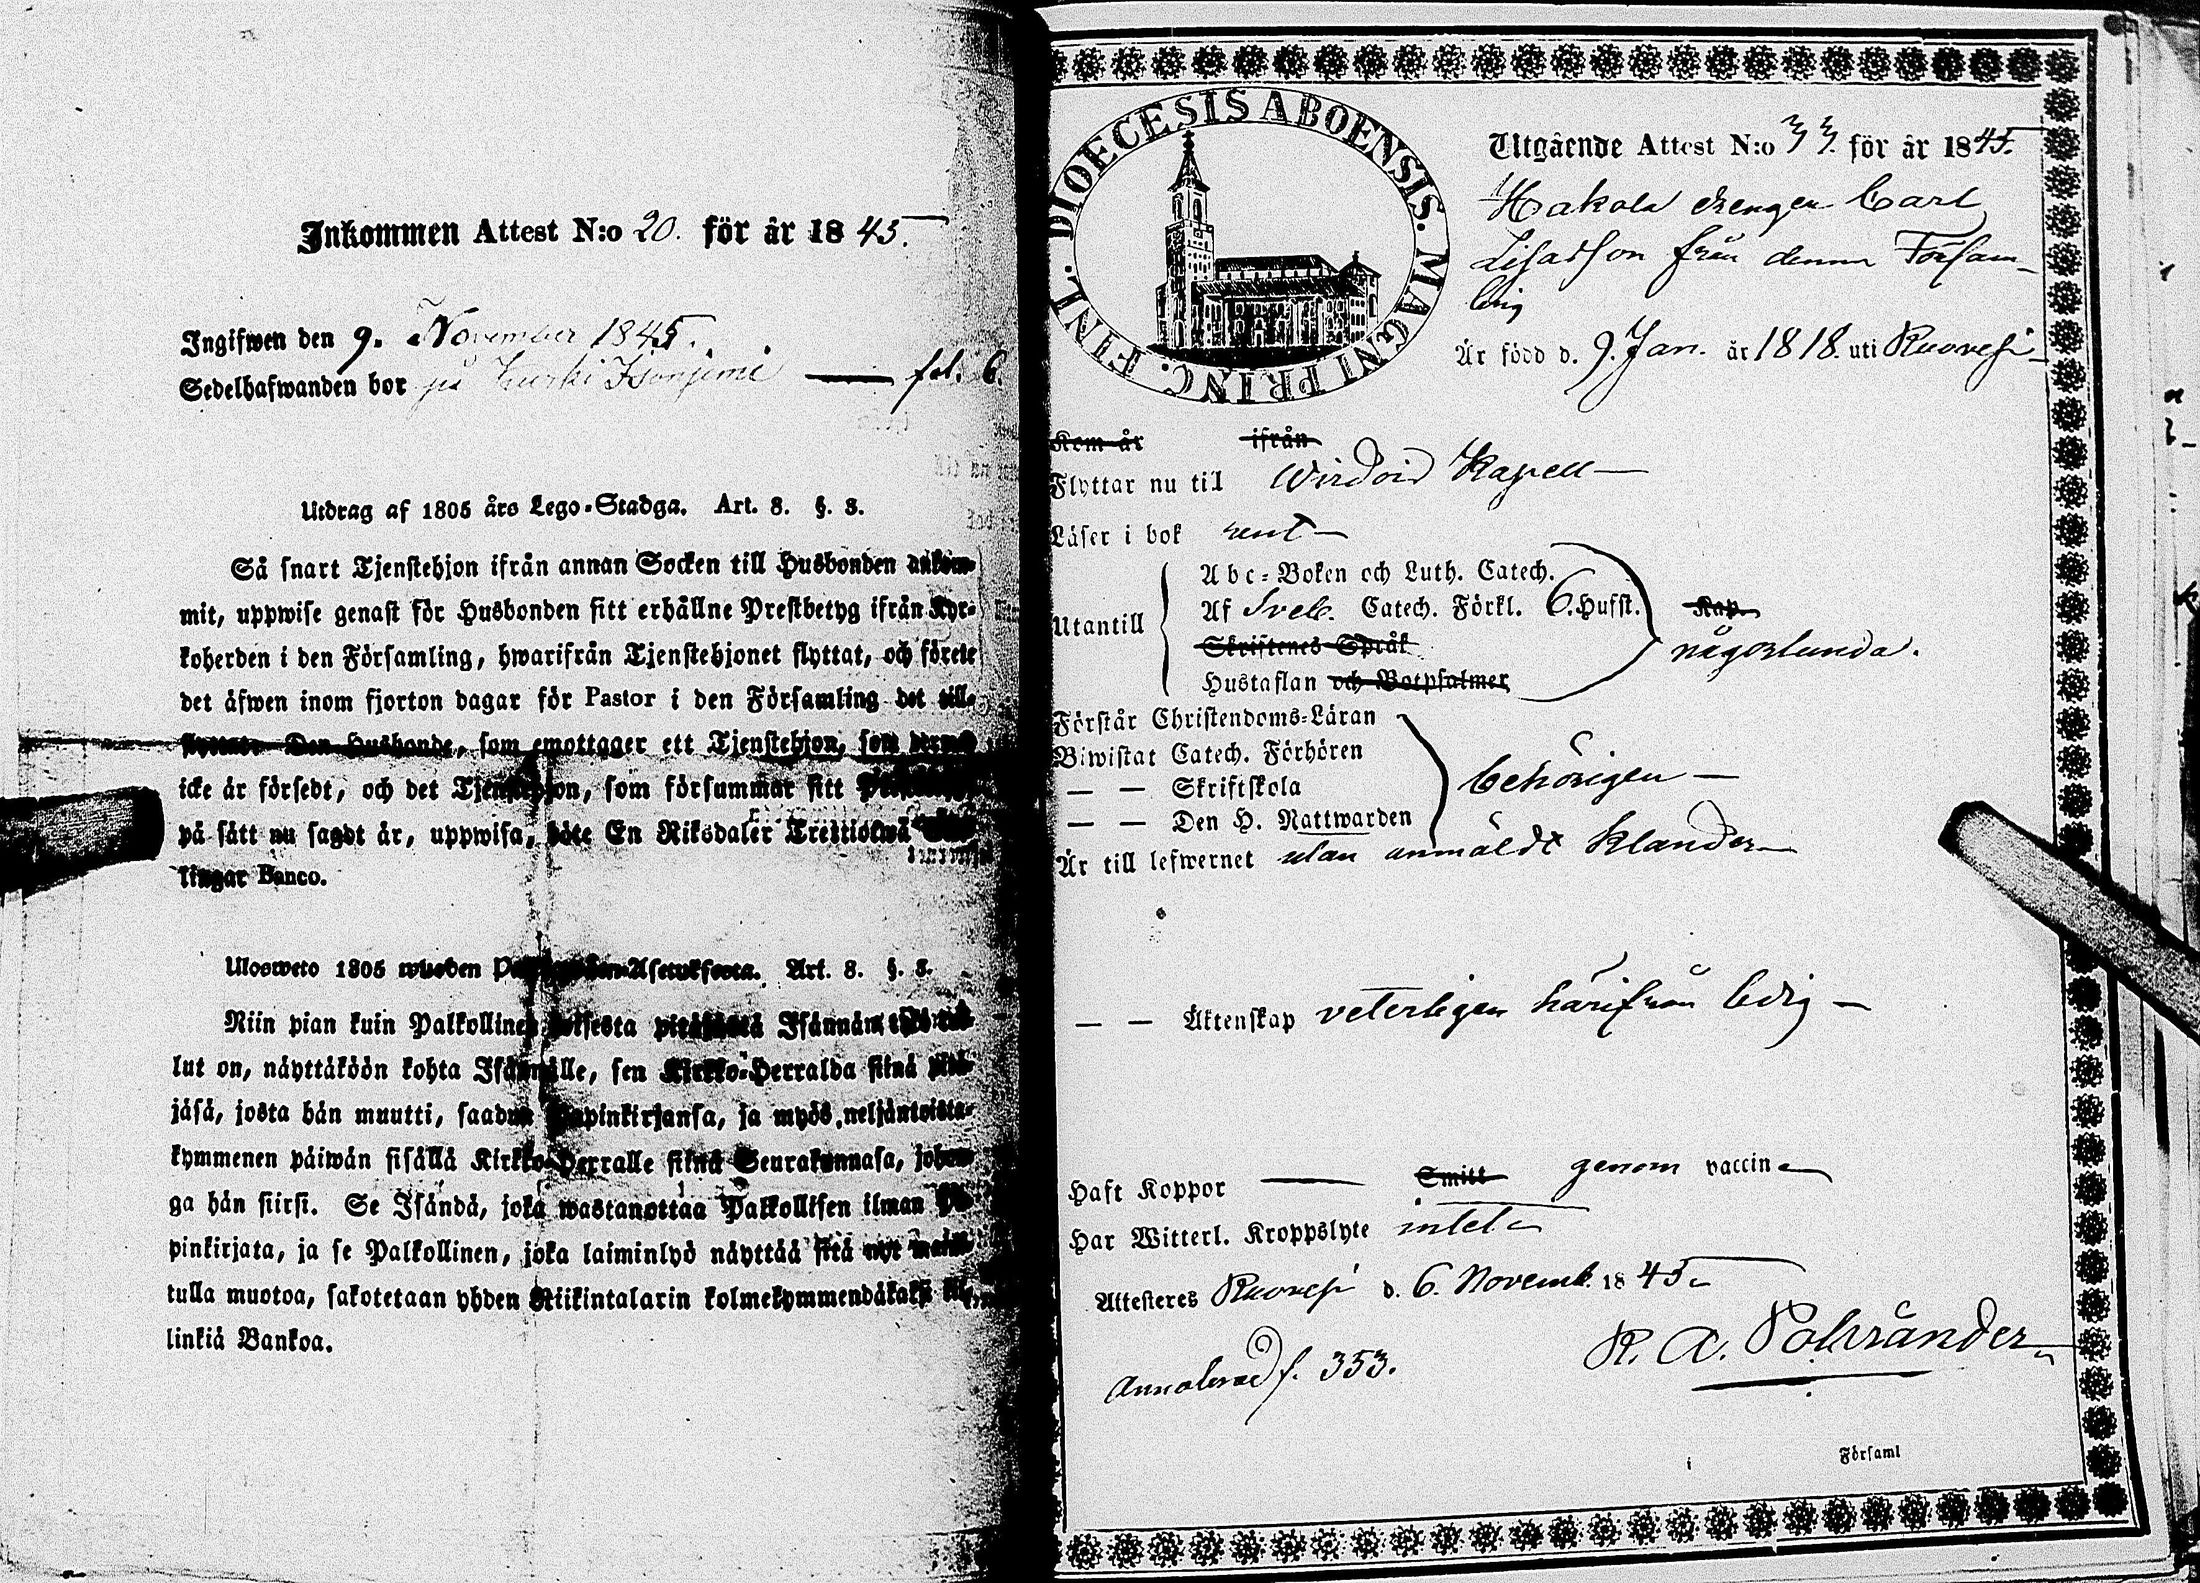 Inkommen Attest N:o 20. för år 1845.
Ingifwen den 9. November 1845.
Sedelhafwanden bor på Kurki fol. 6.
Utdrag af 1805 års Lego-Stadga. Art. 8. §. 3.
Så snart Tjenstehjon ifrån annan Socken till Husbonden ankom-
mit, uppwise genast för Husbonden sitt erhållne Prestbetyg ifrån Kyr-
koherden i den Församling, hwarifrån Tjenstehjonet flyttat, och förete
det äfwen inom fjorton dagar för Pastor i den Församling det till-
flyttat. Den Husbonde, som emottager ett Tjenstehjon, som dermed
icke är försedt, och det Tjenstehjon, som försummar sitt
på sätt nu sagdt är, uppwisa, böte En Riksdaler Trettiotwå
lingar Banco.
Ulosweto 1805 wuoden Palkollisten Asetuksesta. Art. 8. §. 3.
Niin pian kuin Palkollinen toisesta pitäjästä Isännän tykö tul-
lut on, näyttäköön kohta Isännälle, sen Kirkko-Herralda siinä pitä-
jäsä, josta hän muutti, saadun Papinkirjansa, ja myös neljäntoista-
kymmenen päiwän sisällä Kirkko-Herralle siinä Seurakunnasa, johon-
ga hän siirsi. Se Isändä, joka wastanottaa Palkollisen ilman Pa-
pinkirjata, ja se Palkollinen, joka laiminlyö näyttää sitä nyt mainit-
tulla muotoa, sakotetaan yhden Riikintalarin kolmekymmendäkaksi kil-
linkiä Bankoa.
DIOECESIS ABOENSIS. MAGNI PRINC. FINL.
Utgående Attest N:o 33. för år 1845.
Hakola drengen Carl
Lisasson från denna Försam-
ling
Är född d. 9. Jan. år 1818. uti Ruovesi
Kom år ifrån
Flyttar nu til Wirdois Kapell
Läser i bok rent
Utantill
Abc-Boken och Luth. Catech.
Af Sveb. Catech. Förkl. 6. Hufst. Kap.
Skriftenes Språk
Hustaflan och Botpsalmer
någorlunda.
Förstår Christendoms-Läran
Biwistat Catech. Förhören
— — Skriftskola
— — Den H. Nattwarden
behörigen
Är till lefwernet utan anmäldt klander
— — Äktenskap veterligen härifrån ledig
Haft Koppor Smitt genom vaccin
Har Witterl. Kroppslyte intet
Attesteres Ruovesi d. 6. Novemb. 1845
Annoterad f. 353.
R. A. Polviander
i Församl